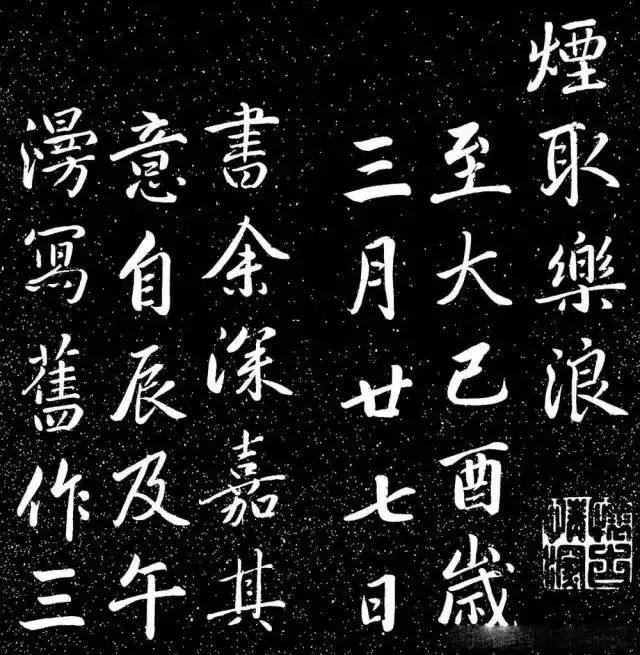 煙耶樂浪
至大己酉歲
三月廿七日
書余深嘉其
意自辰及午
漫寫舊作三